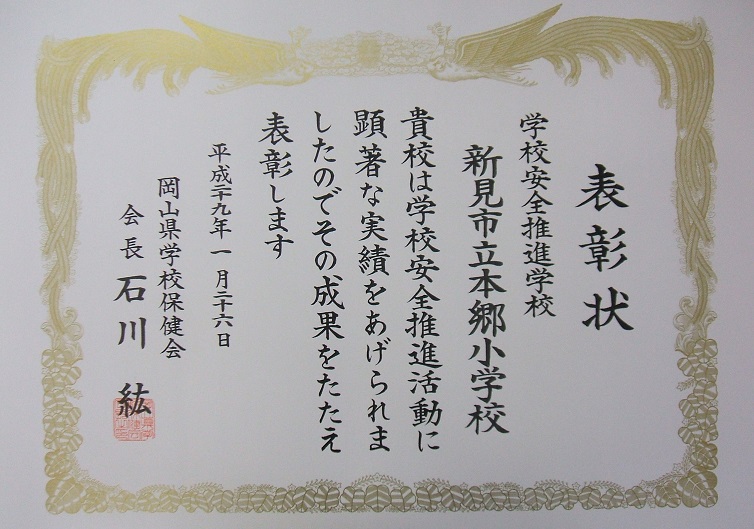 表彰状
学校安全推進学校
新見市立本郷小学校
貴校は学校安全推進活動に
顕著な実績をあげられま
したのでその成果をたたえ
表彰します
平成二十九年一月二十六日
岡山県学校保健会
会長 石川 紘